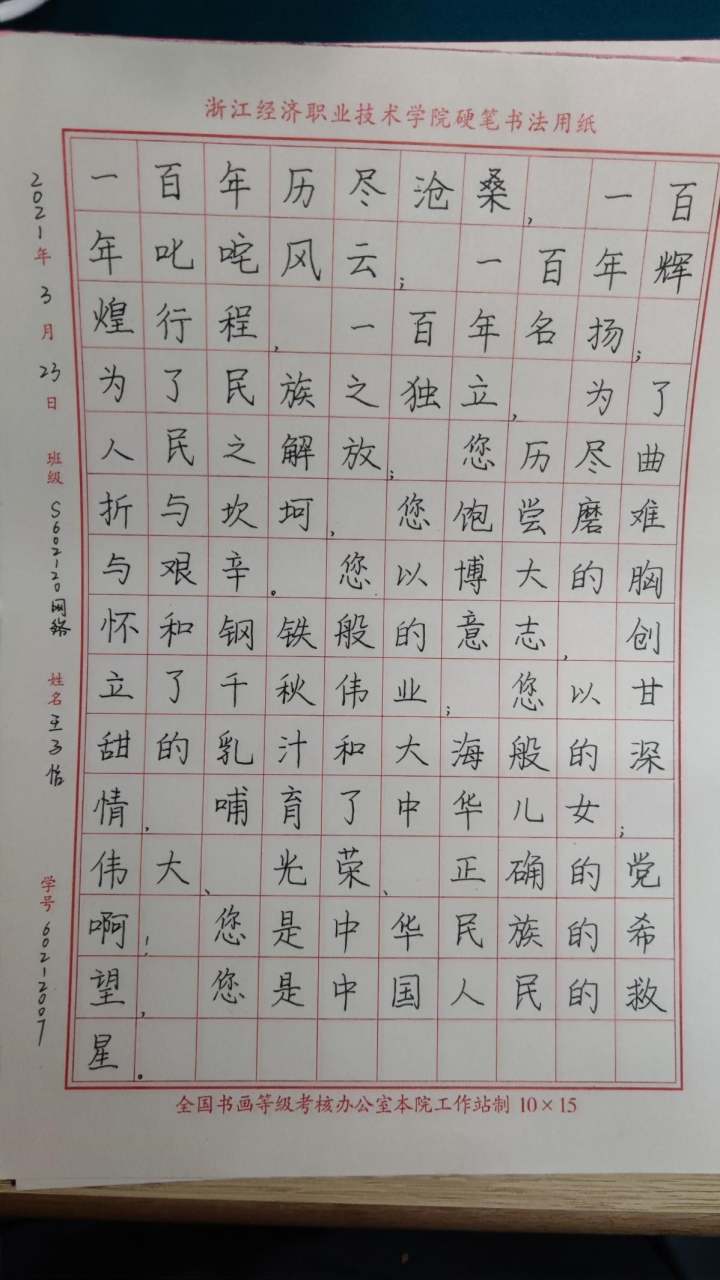 浙江经济职业技术学院硬笔书法用纸
一百年历尽沧桑,一百
年叱咤风云;一百年辉
煌行程,一百年名扬;
为了民族之独立,为了
人民之解放;您历尽曲
折与坎坷,您饱尝磨难
与艰辛。您以博大的胸
怀和钢铁般的意志,创
立了千秋伟业;您以甘
甜的乳汁和大海般的深
情,哺育了中华儿女;
伟大、光荣、正确的党
啊!您是中华民族的希
望,您是中国人民的救
星。
2021年3月23日 班级S602120网络 姓名王子怡 学号60212007
全国书画等级考核办公室本院工作站制 10×15